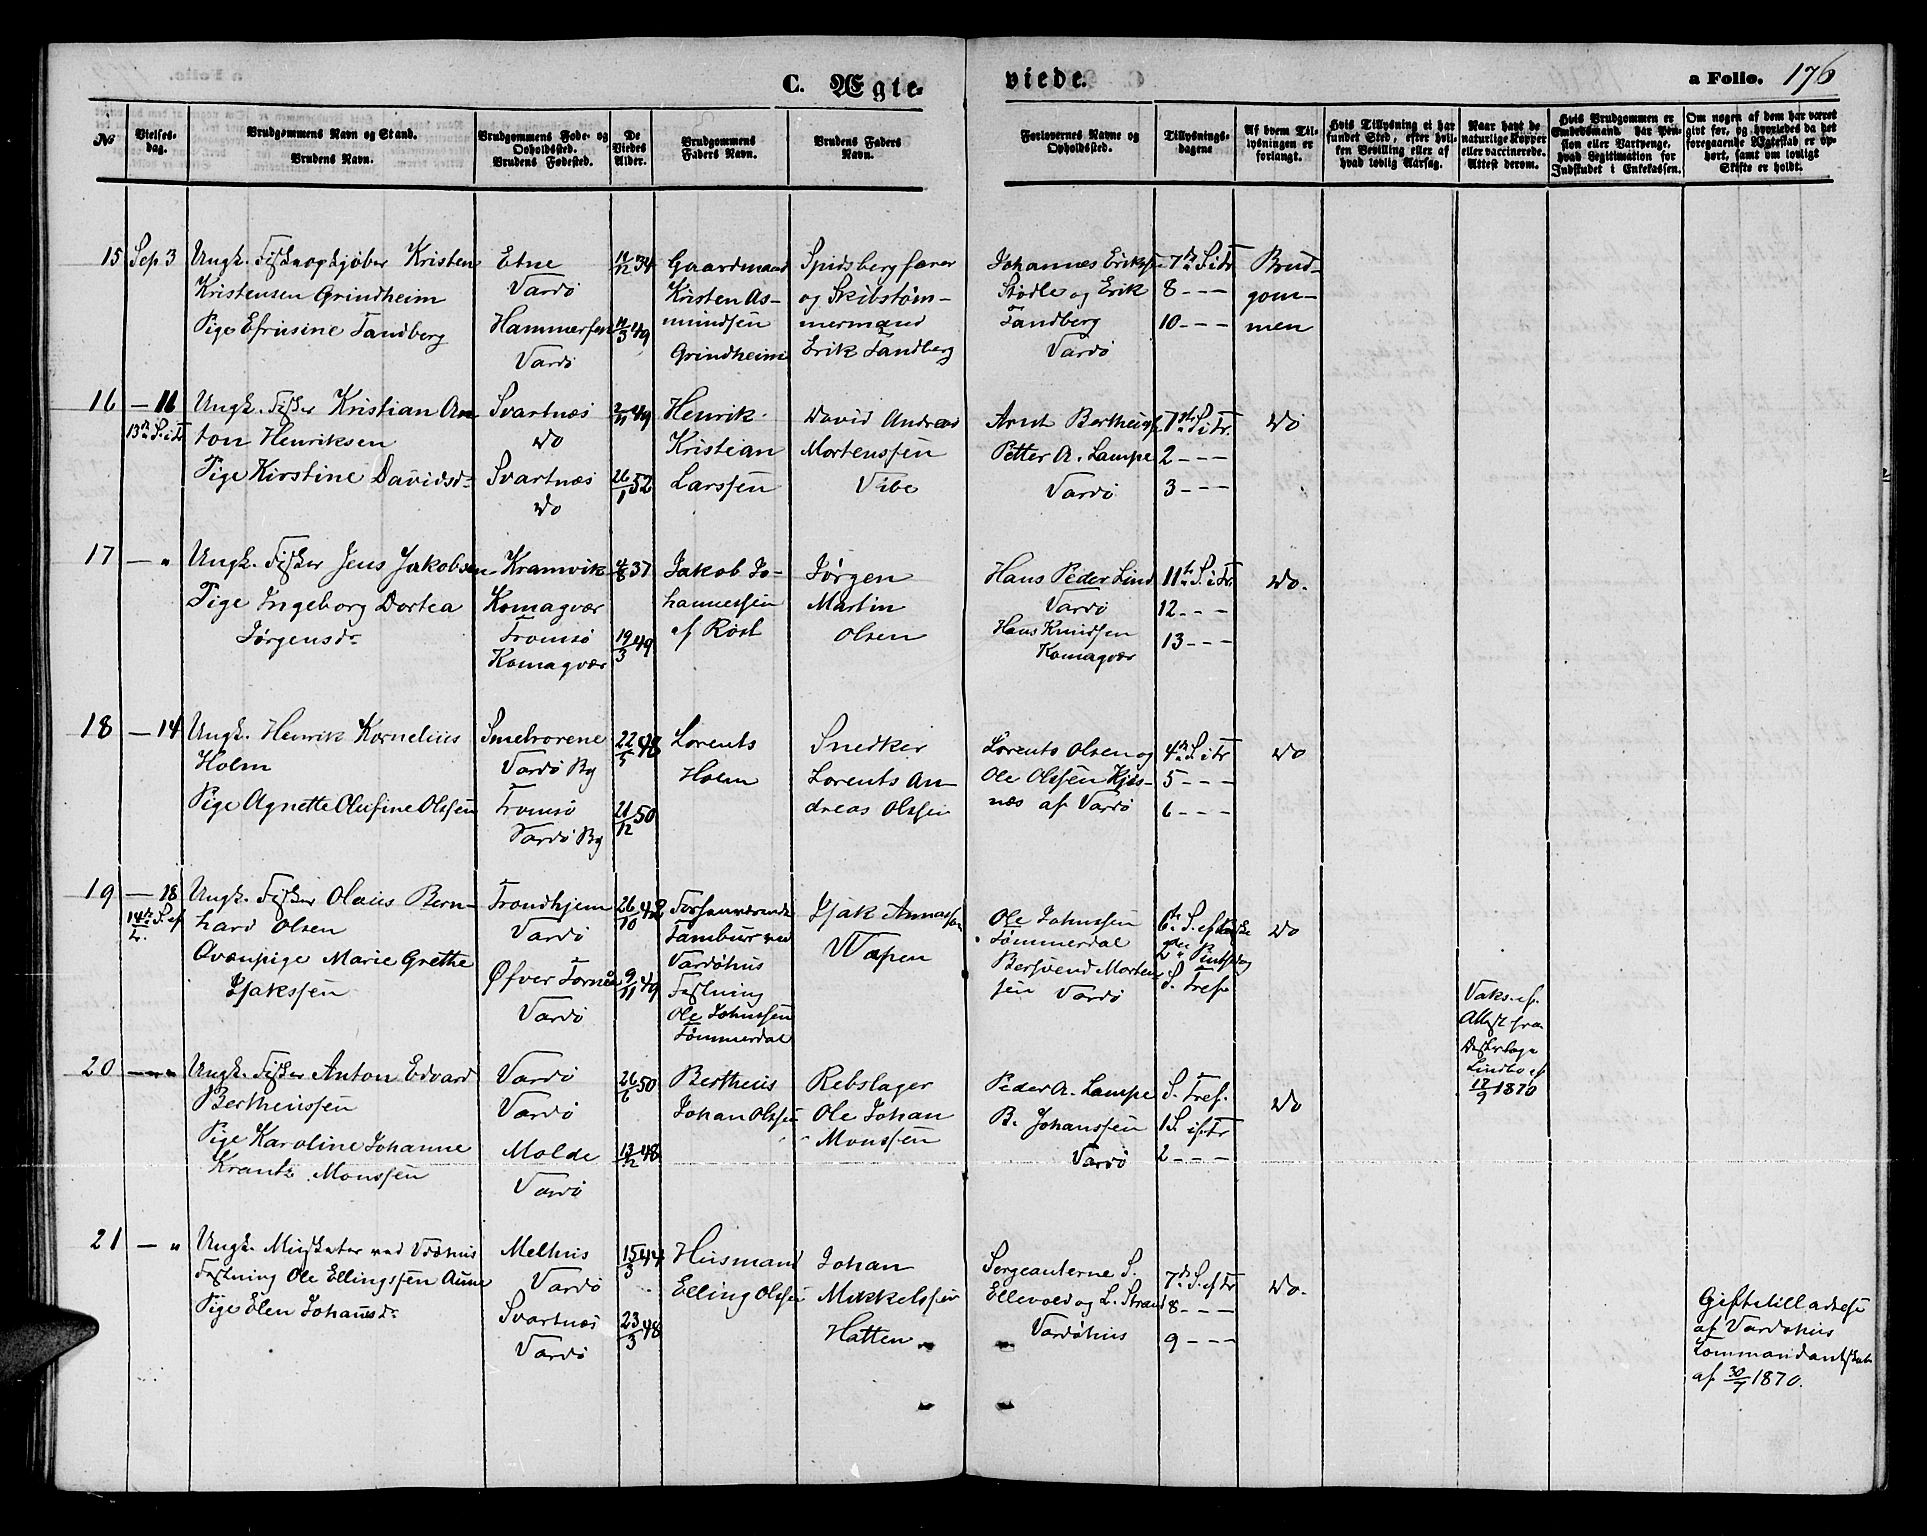 C. Ægte-
viede.
a Folio. 176
No
Vielses-
dag.
Brudgommens Navn og Stand.
Brudens Navn.
Brudgommens Føde- og
Opholdssted.
Brudens Fødested.
De
Viedes
Alder.
Brudgommens
Faders Navn.
Brudens Faders
Navn.
Forlovernes Navne og
Opholdssted.
Tillysnings-
dagene
Af hvem Til-
lysningen er
forlangt.
Hvis Tillysning ei har
fundet Sted, efter hvil-
ken Bevilling eller af
hvad lovlig Aarsag.
Naar havt de
naturlige Kopper
eller vaccinerede.
Attest derom.
Hvis Brudgommen er
Embedsmand, har Pen-
sion eller Vartpenge,
hvad Legitimation for
Indskudet i Enkekassen.
Om nogen af dem har været
givt før, og hvorledes da det
foregaaende Ægteskab er op-
hørt, samt om lovligt
Skifte er holdt.
15
Sep 3
Ungk. Fiskeopkjøber Kristen
Kristensen Grindheim
Pige Efrusine Tandberg
Etne
Vardö
Hammerfest
Vardö
34
11/3 49
Gaardmand
Kristen As-
mundsen
Grindheim
Spidsbergfarer
og Skibstøm-
mermand
Erik Tandberg
Johannes Eriksen
Stødle og Erik
Tandberg
Vardö
7de S i Tr
8 - - -
10 - - -
Brud-
gom-
men
16
— 11
13de S. i Tr
Ungk. Fisker Kristian An-
ton Henriksen
Pige Kirstine Davidsdr
Svartnæs
Do
Svartnæs
Do
2/11 49
26/1 52
Henrik
Kristian
Larssen
David Andreas
Mortenssen
Vibe
Arnt Bertheussen
Petter A. Lampe
Vardö
1ste S i Tr.
2 - - -
3 - - -
Do
17
— "
Ungk. Fisker Jens Jakobsen
Pige Ingeborg Dortea
Jørgensdr
Kramvik
Komagvær
Tromsö
Komagvær
4/8 37
19/3 49
Jakob Jo-
hannessen
af Röst
Jørgen
Martin
Olsen
Hans Peder Lind
Vardö
Hans Knudsen
Komagvær
11te S. i Tr
12 - - -
13 - - -
Do.
18
— 14
Ungk. Henrik Kornelius
Holm
Pige Agnette Olufine Olssen
Smelrorene
Vardö By
Tromsö
Vardö By
22/5 48
21/12 50
Lorents
Holm
Snedker
Lorents An-
dreas Olssen
Lorents Olsen og
Ole Olssen Kjös-
næs af Vardö
4de S. i Tr
5 - - -
6 - - -
Do
19
— 18
14de S. ef
Tr.
Ungk. Fisker Olaus Bern-
hard Olsen
Qvænpige Marie Grethe
Isakssen
Trondhjem
Vardö
Øfver Torneå
Vardö
26/10 42
9/11 49
Forhenværende
Tambur ved
Vardöhus
Festning
Ole Johnssen
Tømmerdal
Isak Annassen
Wæpen
Ole Johnssen
Tømmerdal
Bersvend Morten-
sen Vardö
6te S. ef Paaske
2den Pintsdag
S. Tref.
Do
Vaks. ef.
Attest fra
Distrlæge
Lindboe af
17/9 1870
20
— " "
Ungk. Fisker Anton Edvard
Bertheussen
Pige Karoline Johanne
Krantz Monssen
Vardö
Vardö
Molde
Vardö
26/6 50
13/12 48
Bertheus
Johan Olssen
Rebslager
Ole Johan
Monssen
Peder A. Lampe
B. Johanssen
Vardö
S. Tref.
1 S. i Tr
2 - - -
Do
21
— "
Ungk. Musketer ved Vdhus
Festning Ole Ellingssen Aune
Pige Elen Johansdr
Melhus
Vardö
Svartnæs
Vardö
15/3 44
23/3 48
Husmand
Elling Olssen
Johan
Mikkelssen
Hatten
Sergeanterne S.
Ellevold og L. Strand
Vardöhus
7de S. ef Tr
8 - - -
9 - - -
Do.
Giftetilladelse
af Vardöhus
Kommandantskab
af 30/7 1870.